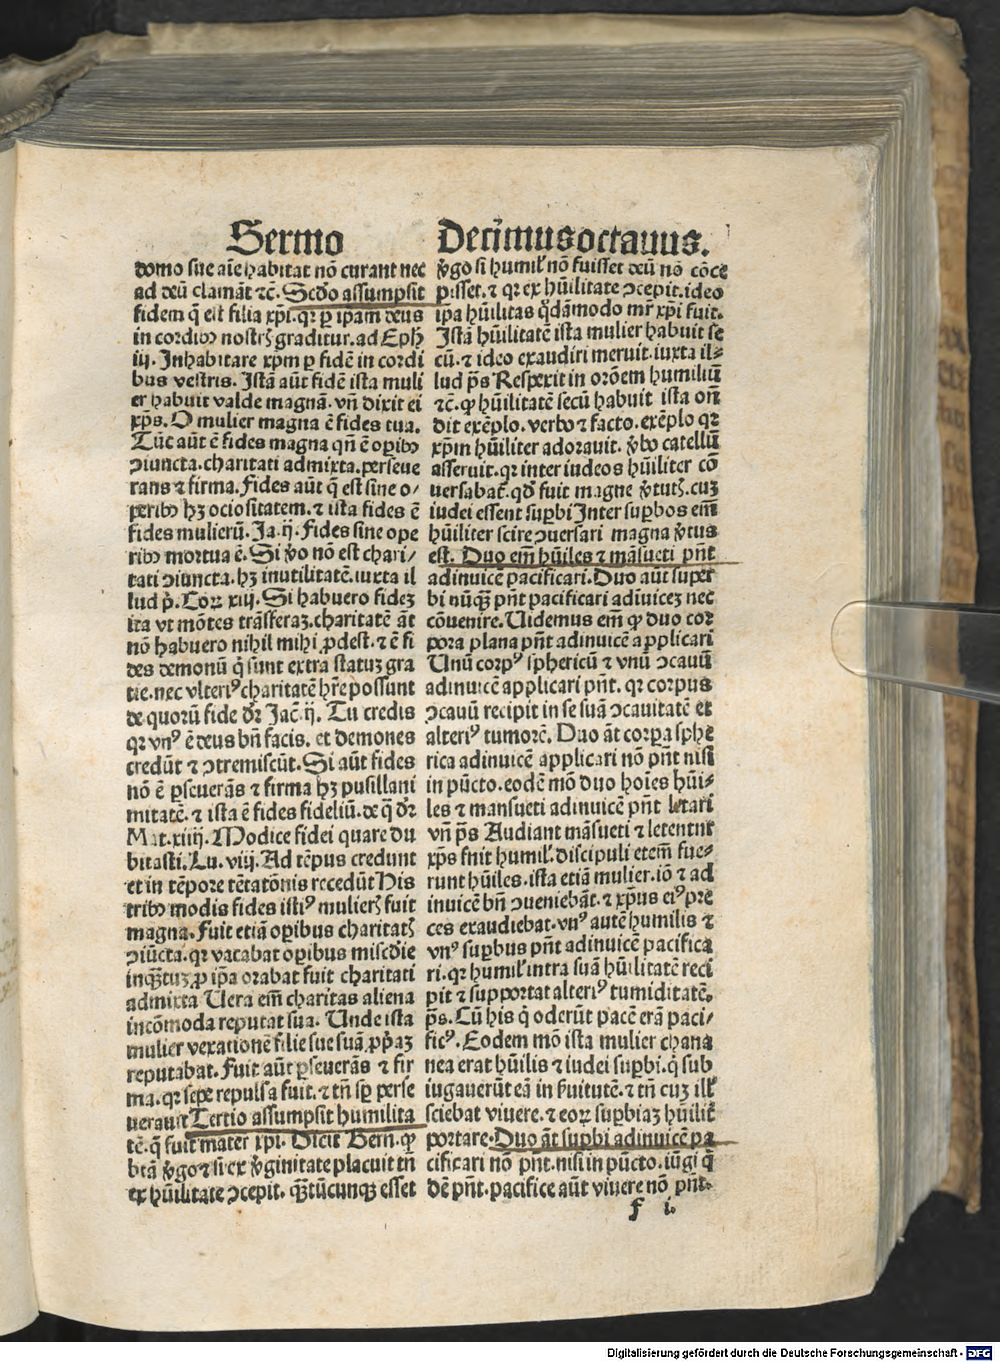 Sermo
domo sue aīe habitat nō curant nec
ad deū clamāt ⁊c̄. Scd̄o assumpsit
fidem q̄ est filia xp̄i. qꝛ ꝑ ip̄am deus
in cordibꝰ nostrꝭ graditur. ad Eph̄
iij. Inhabitare xp̄m ꝑ fidē in cordi
bus vestris. Istā aūt fidē ista muli
er habuit valde magnā. vn̄ dixit ei
xp̄s. O mulier magna ē fides tua.
Tūc aūt ē fides magna qn̄ ē oꝑibꝰ
ꝯiuncta. charitati admixta. perseue
rans ⁊ firma. Fides aūt q̄ est sine o/
peribꝰ hꝫ ociositatem. ⁊ ista fides ē
fides mulierū. Ja. ij. Fides sine ope
ribꝰ mortua ē. Si v̄o nō est chari/
tati ꝯiuncta. hꝫ inutilitatē. iuxta il
lud p̄. Coꝝ xiij. Si habuero fideꝫ
ita vt mōtes trāsferaꝫ. charitatē āt
nō habuero nihil mihi ꝓdest. ⁊ ē fi
des demonū q̄ sunt extra statuꝫ gra
tie. nec vlteriꝰ charitatē hr̄e possunt
de quorū fide dr̄ Jac̄. ij. Tu credis
qꝛ vnꝰ ē deus bn̄ facis. et demones
credūt ⁊ ꝯtremiscūt. Si aūt fides
nō ē ꝑseuerās ⁊ firma hꝫ pusillani
mitatē. ⁊ ista ē fides fideliū. de q̄ dr̄
Mat. xiiij. Modice fidei quare du
bitasti. Lu. viij. Ad tēpus credunt
et in tēpore tētatōnis recedūt His
tribꝰ modis fides istiꝰ mulierꝭ fuit
magna. Fuit etiā oꝑibus charitatꝭ
ꝯiūcta. qꝛ vacabat oꝑibus miscd̄ie
inqꝫtuꝫ ꝓ ip̄a orabat fuit charitati
admixta Uera em̄ charitas aliena
incōmoda reputat sua. Unde ista
mulier vexationē filie sue suā ꝓp̄aꝫ
reputabat. Fuit aūt ꝑseuerās ⁊ fir
ma. qꝛ sepe repulsa fuit. ⁊ tn̄ sꝑ perse
uerauit Tertio assumpsit humilita
tē. q̄ fuit mater xp̄i. Dicit Bern. ꝙ
btā v̄go ⁊ si ex v̄ginitate placuit tn̄
ex hūilitate ꝯcepit. qꝫtūcunqꝫ esset
Decimusoctauus.
v̄go si humilꝭ nō fuisset deū nō cōce
pisset. ⁊ qꝛ ex hūilitate ꝯcepit. ideo
ip̄a hūilitas qd̄āmodo mr̄ xp̄i fuit.
Istā hūilitatē ista mulier habuit se
cū. ⁊ ideo exaudiri meruit. iuxta il⸗
lud p̄s Respexit in orōem humiliū
⁊c̄. ꝙ hūilitatē secū habuit ista on̄
dit exēplo. verbo ⁊ facto. exēplo qꝛ
xp̄m hūiliter adorauit. v̄bo catellū
asseruit. qꝛ inter iudeos hūiliter cō
uersabat̄. qd̄ fuit magne v̄tutꝭ. cuꝫ
iudei essent suꝑbi Inter suꝑbos em̄
hūiliter scire ꝯuersari magna v̄tus
est. Duo em̄ hūiles ⁊ māsueti pn̄t
adinuicē pacificari. Duo aūt super
bi nūqꝫ pn̄t pacificari adīuiceꝫ nec
cōuenire. Uidemus em̄ ꝙ duo cor
pora plana pn̄t adinuicē applicari
Unū corpꝰ sphericū ⁊ vnū ꝯcauū
adinuicē applicari pn̄t. qꝛ corpus
ꝯcauū recipit in se suā ꝯcauitatē et
alteriꝰ tumorē. Duo āt corꝑa sphe
rica adinuicē applicari nō pn̄t nisi
in pūcto. eodē mō duo hoīes hūi⸗
les ⁊ mansueti adinuicē pn̄t letari
vn̄ p̄s Audiant māsueti ⁊ letentur
xp̄s fuit humilꝭ. discipuli etem̄ fue⸗
runt hūiles. ista etiā mulier. iō ⁊ ad
inuicē bn̄ ꝯueniebāt. ⁊ xp̄us eiꝰ pre
ces exaudiebat. vnꝰ autē humilis ⁊
vnꝰ suꝑbus pn̄t adinuicē pacifica
ri. qꝛ humilꝭ intra suā hūilitatē reci
pit ⁊ supportat alteriꝰ tumiditatē.
p̄s. Cū his q̄ oderūt pacē erā paci/
ficꝰ. Eodem mō ista mulier chana
nea erat hūilis ⁊ iudei suꝑbi. q̄ sub
iugauerūt eā in ẜuitutē. ⁊ tn̄ cuꝫ illꝭ
sciebat viuere. ⁊ eoꝝ suꝑbiaꝫ hūilit̄
portare. Duo āt suꝑbi adinuicē pa
cificari nō pn̄t. nisi in pūcto. iūgi q̄
dē pn̄t. pacifice aūt viuere nō pn̄t.
f i.
Digitalisierung gefördert durch die Deutsche Forschungsgemeinschaft - DFG